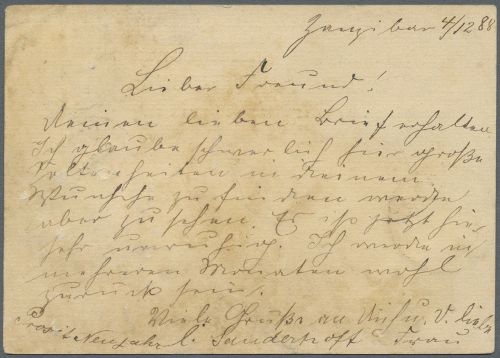 Zanzibar 4/12 88
Lieber Freund!
Deinen lieben Brief erhalten
Ich glaube schwerlich hier große
Seltenheiten in deinem
Wunsche zu finden werde
aber zu sehen. Es ist jetzt hier
sehr unruhig. Ich werde in
mehreren Monaten wohl
zurück sein.
Viele Grüße an
Prosit Neujahr Frau